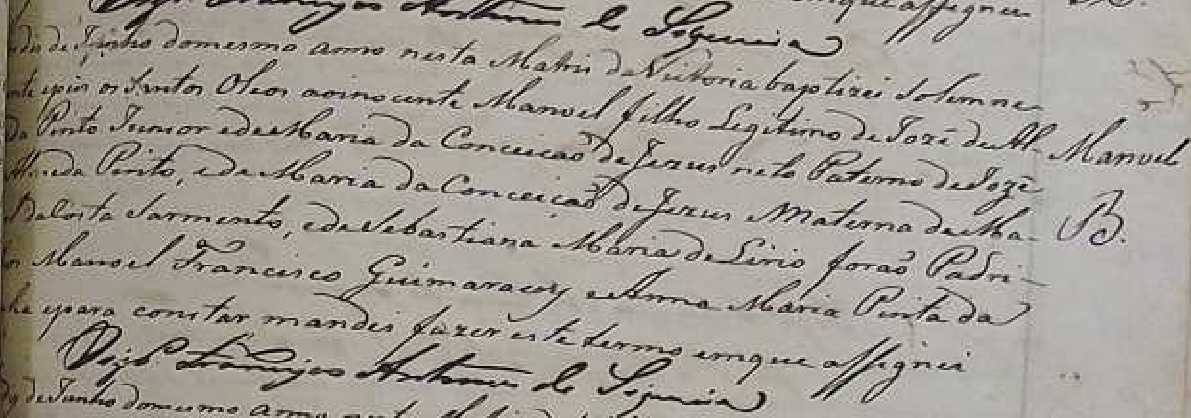 em que assignei
Antunes de Siqueira
de Junho domesmo anno nesta Matris da Victoria baptizei Solemne-
epus os Santos Oleos ao inocente Manoel filho Legitimo de Jozé de Al- Manoel
Pinto Junior e de Maria da Conceicaõ de Jezus neto Paterno de Jozé
Pinto, e de Maria da Conceicaõ de Jezus e Materna de Ma- B.
da Costa Sarmento, e de Sebastiana Maria de Lirio foraõ Padri-
Manoel Francisco Guimaraens e Anna Maria Pinta da
epara constar mandei fazer este termo emque assignei
Antunes de Siqueira
de Junho domesmo anno